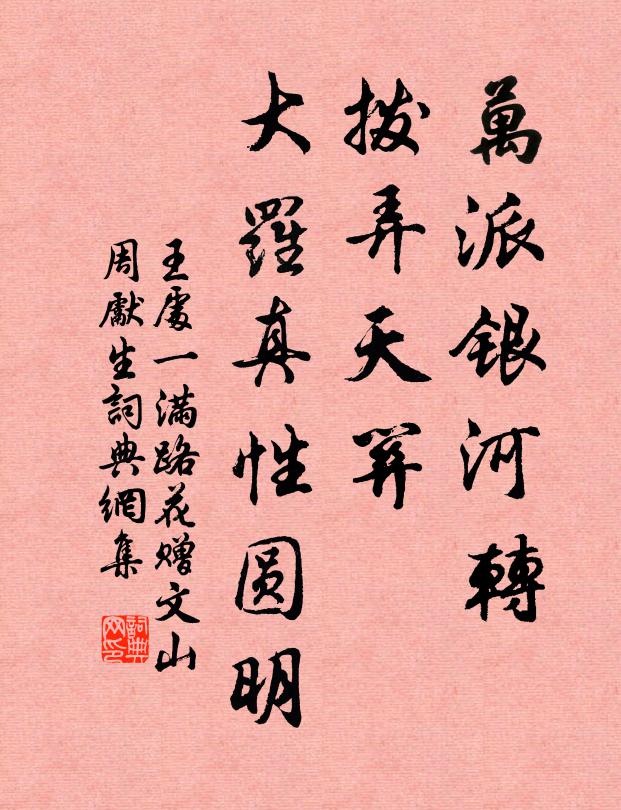 萬派銀河轉
撥弄天關
大羅真性圓明
王處一滿路花贈文山
周獻生詞典網集
詞典網印